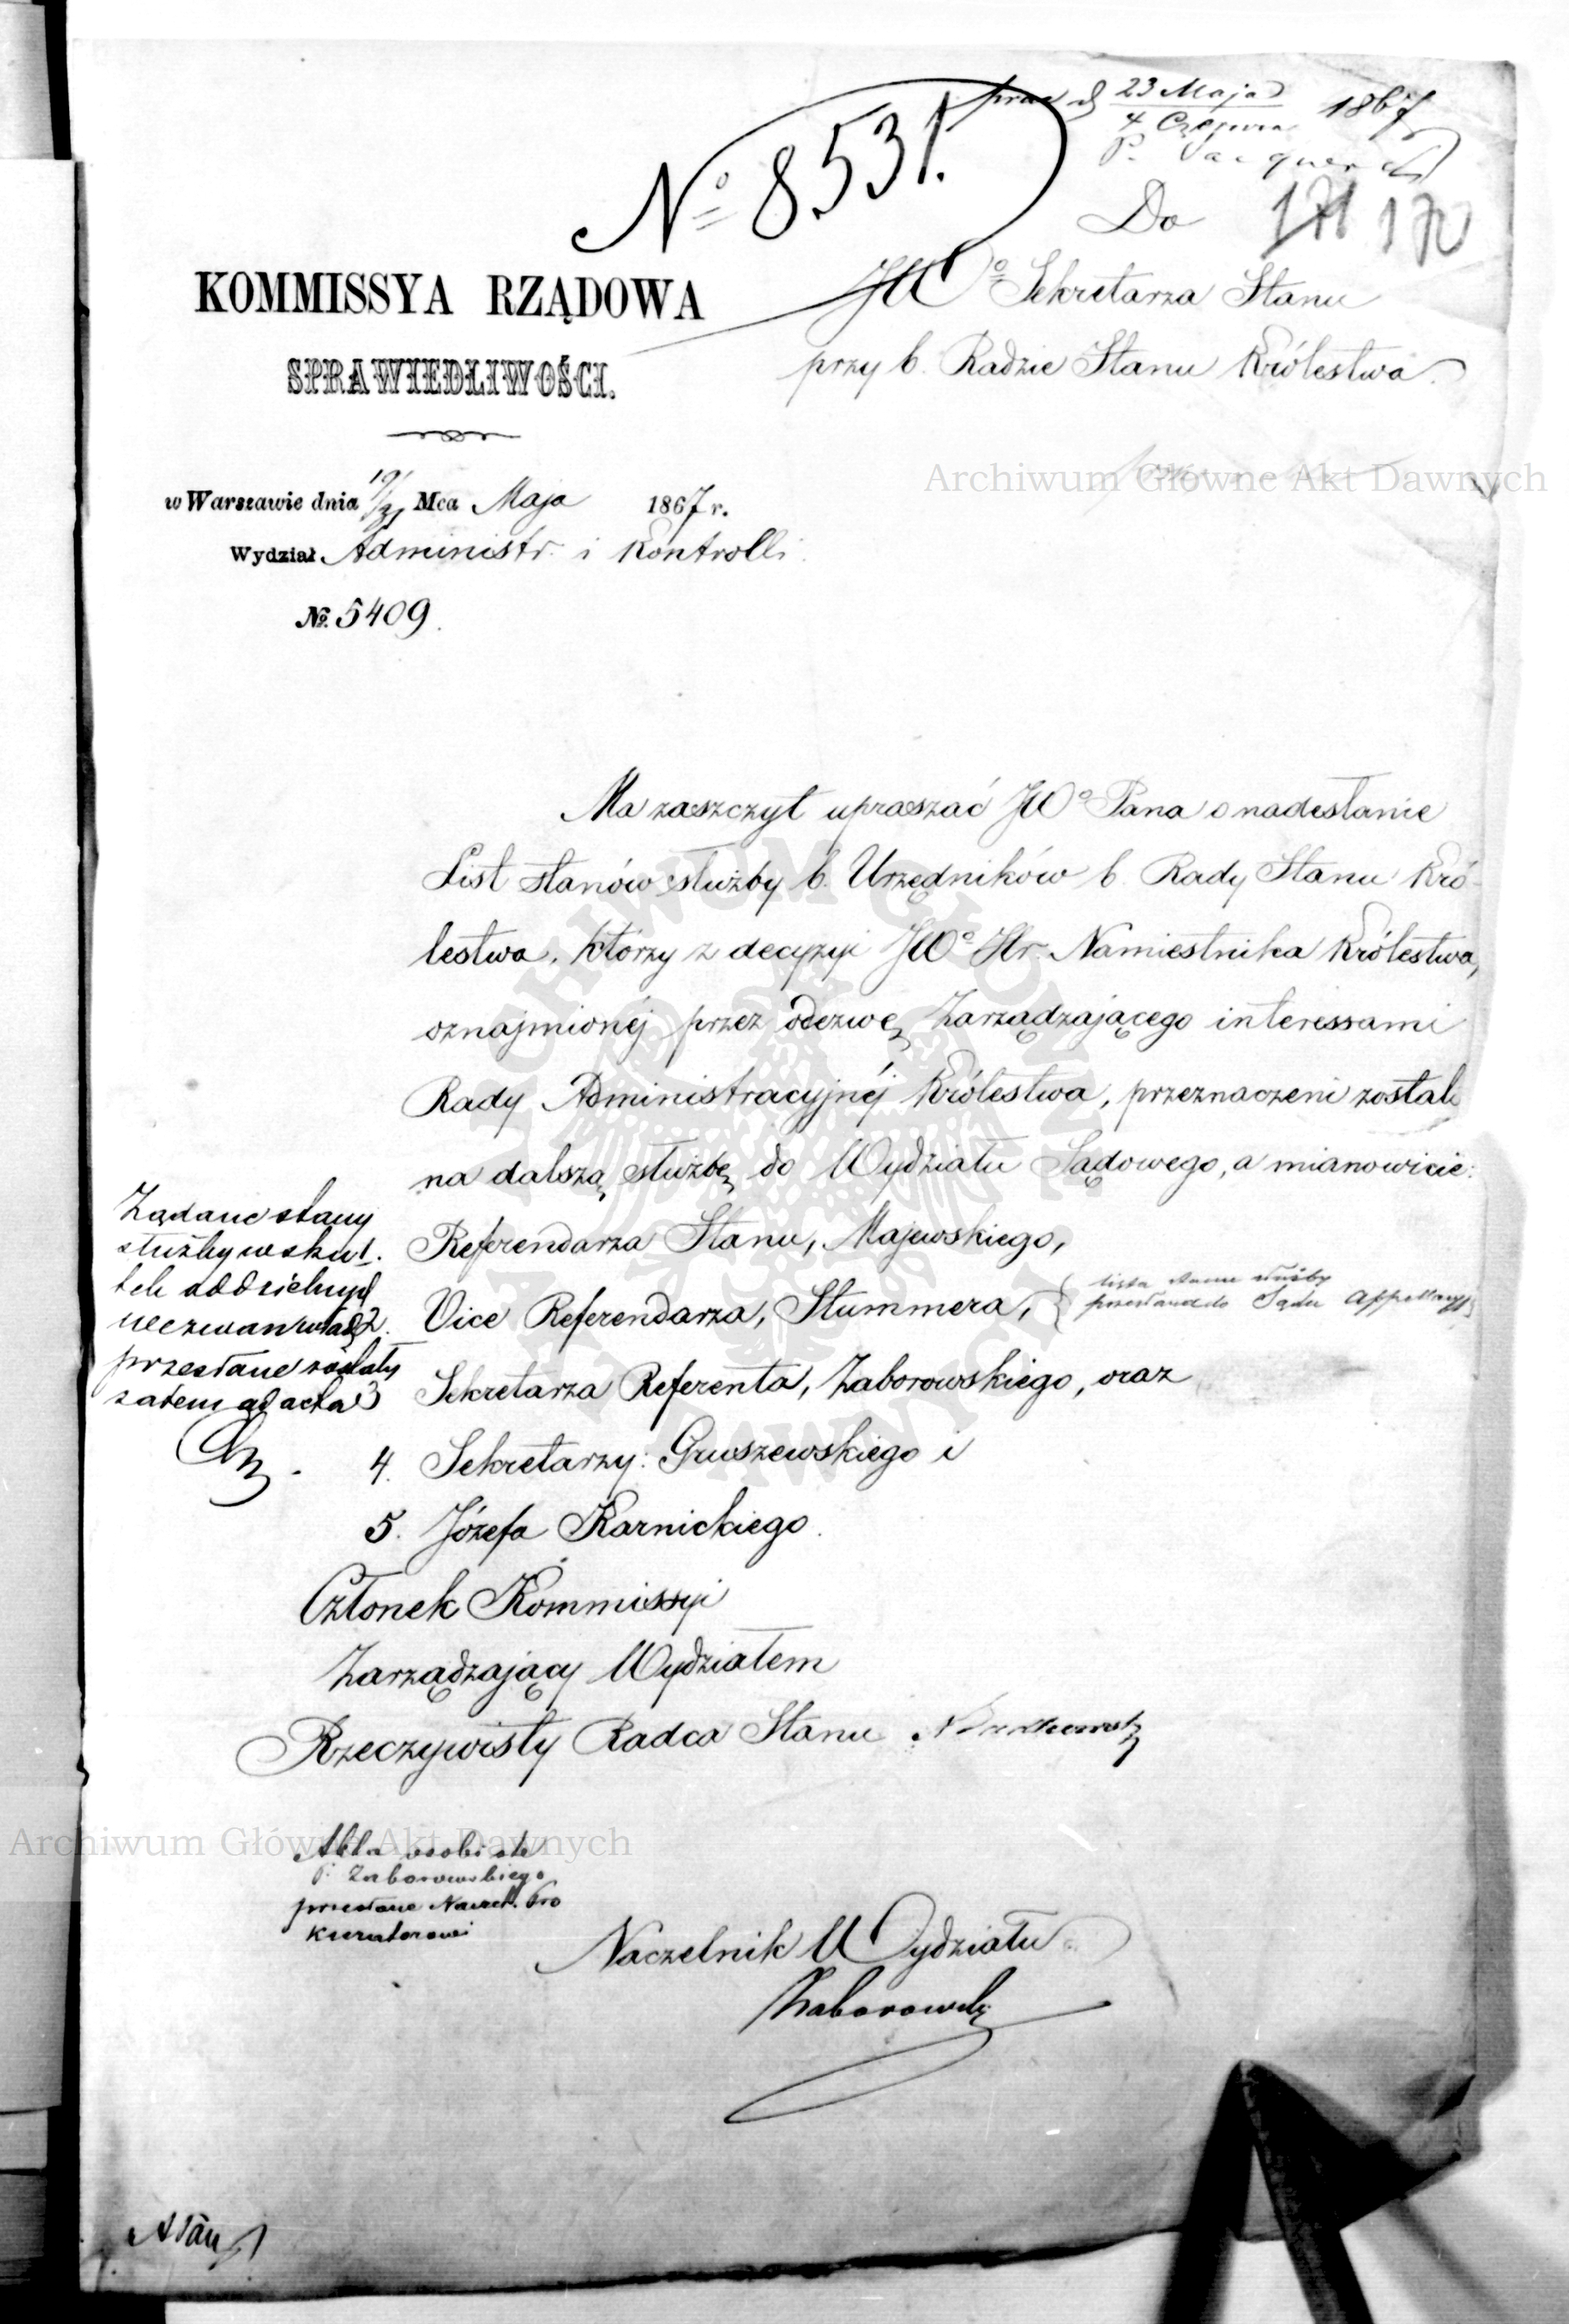 23 Maja
4 Czerwca 1867
P.
No 8531.
Do 171 170
JWo Sekretarza Stanu
przy b. Radzie Stanu Królestwa.
KOMMISSYA RZĄDOWA
SPRAWIEDLIWOŚCI.
w Warszawie dnia 19/31 Mca Maja 1867 r.
Wydział Administr. i Kontrolli.
No. 5409.
Archiwum Główne Akt Dawnych
Ma zaszczyt upraszać JWo Pana o nadesłanie
List stanów służby b. Urzędników b. Rady Stanu Kró-
lestwa, którzy z decyzyi JWo Hr. Namiestnika Królestwa,
oznajmionéj przez odezwę Zarządzającego interessami
Rady Administracyjnéj Królestwa, przeznaczeni zostali
na dalszą służbę do Wydziału Sądowego, a mianowicie:
1. Referendarza Stanu, Majewskiego,
2. Vice Referendarza, Stummera, { lista stanu służby
przesłana do Sądu Appellacyj }
3 Sekretarza Referenta, Zaborowskiego, oraz
4. Sekretarzy: Gruszewskiego i
5. Józefa Karnickiego.
Żądane stany
służby wsku-
tek oddzielnych
wezwań władz
przesłane zostały
zatem ad acta
Członek Kommissyi
Zarządzający Wydziałem
Rzeczywisty Radca Stanu
Archiwum Główne Akt Dawnych
Akta osobiste
P. Zaborowskiego
przesłane Naczel. Pro
kuratorowi
Naczelnik Wydziału
Zaborowski
ARCHIWUM GŁÓWNE AKT DAWNYCH